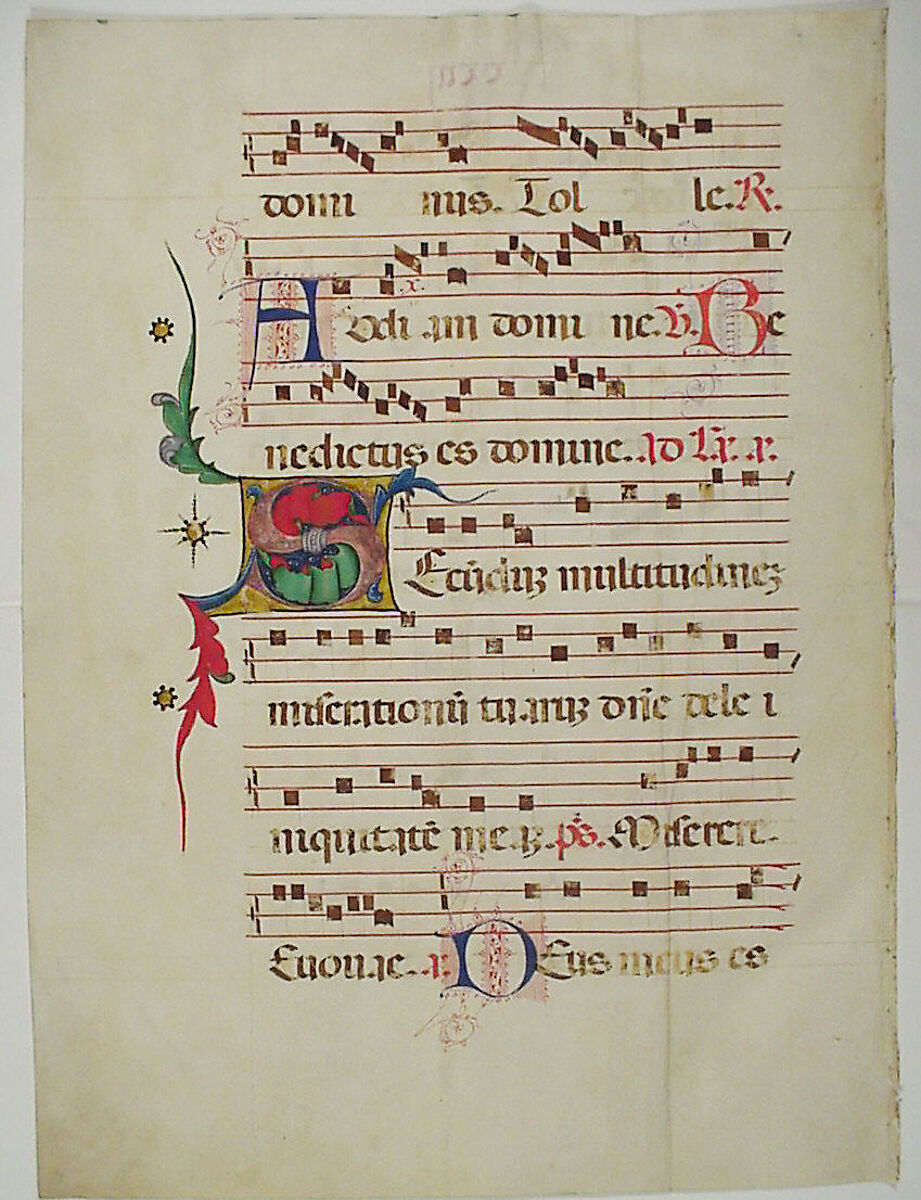 domi nus. Tol le. R.
Audi am domi ne. V. Be
nedictus es domine. Ad Lr. a.
Secūduꝫ multitudineꝫ
miserationū tuaruꝫ dñe dele i
niquitatē meaꝫ. ps. Miserere.
Euouae. a. Deus meus es